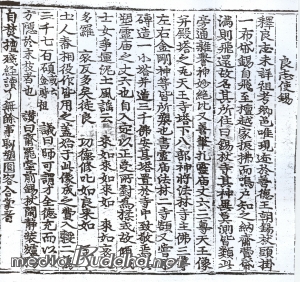 良志使錫
釋良志未詳祖考鄕邑唯現迹於善德王朝錫杖頭掛
一布帒錫自飛至檀越家振拂而鳴戶知之納齋費帒
滿則飛還故名其所住曰錫杖寺其神異莫測皆類此
旁通雜譽神妙絶比又善筆札靈廟丈六三尊天王像
并殿塔之瓦天王寺塔下八部神將法林寺主佛三尊
左右金剛神等皆所塑也書靈廟法林二寺額又嘗彫
磚造一小塔並造三千佛安其塔置於寺中致敬焉其
塑靈廟之丈六也自入定以正受所對爲揉式故傾城
士女爭運泥土風謠云 來如來如來如 來如哀反
多羅 哀反多矣徒良 功德修叱如良來如 至今
土人舂相役作皆用之蓋始于此像成之費入穀二萬
三千七百碩 議曰師可謂才全德充而以大
方隱於末技者也 讚曰 齋罷堂前錫杖閑靜裝爐鴨
自焚檀殘經讀了無餘事聊塑圓容合掌看
mediaBuddha.net